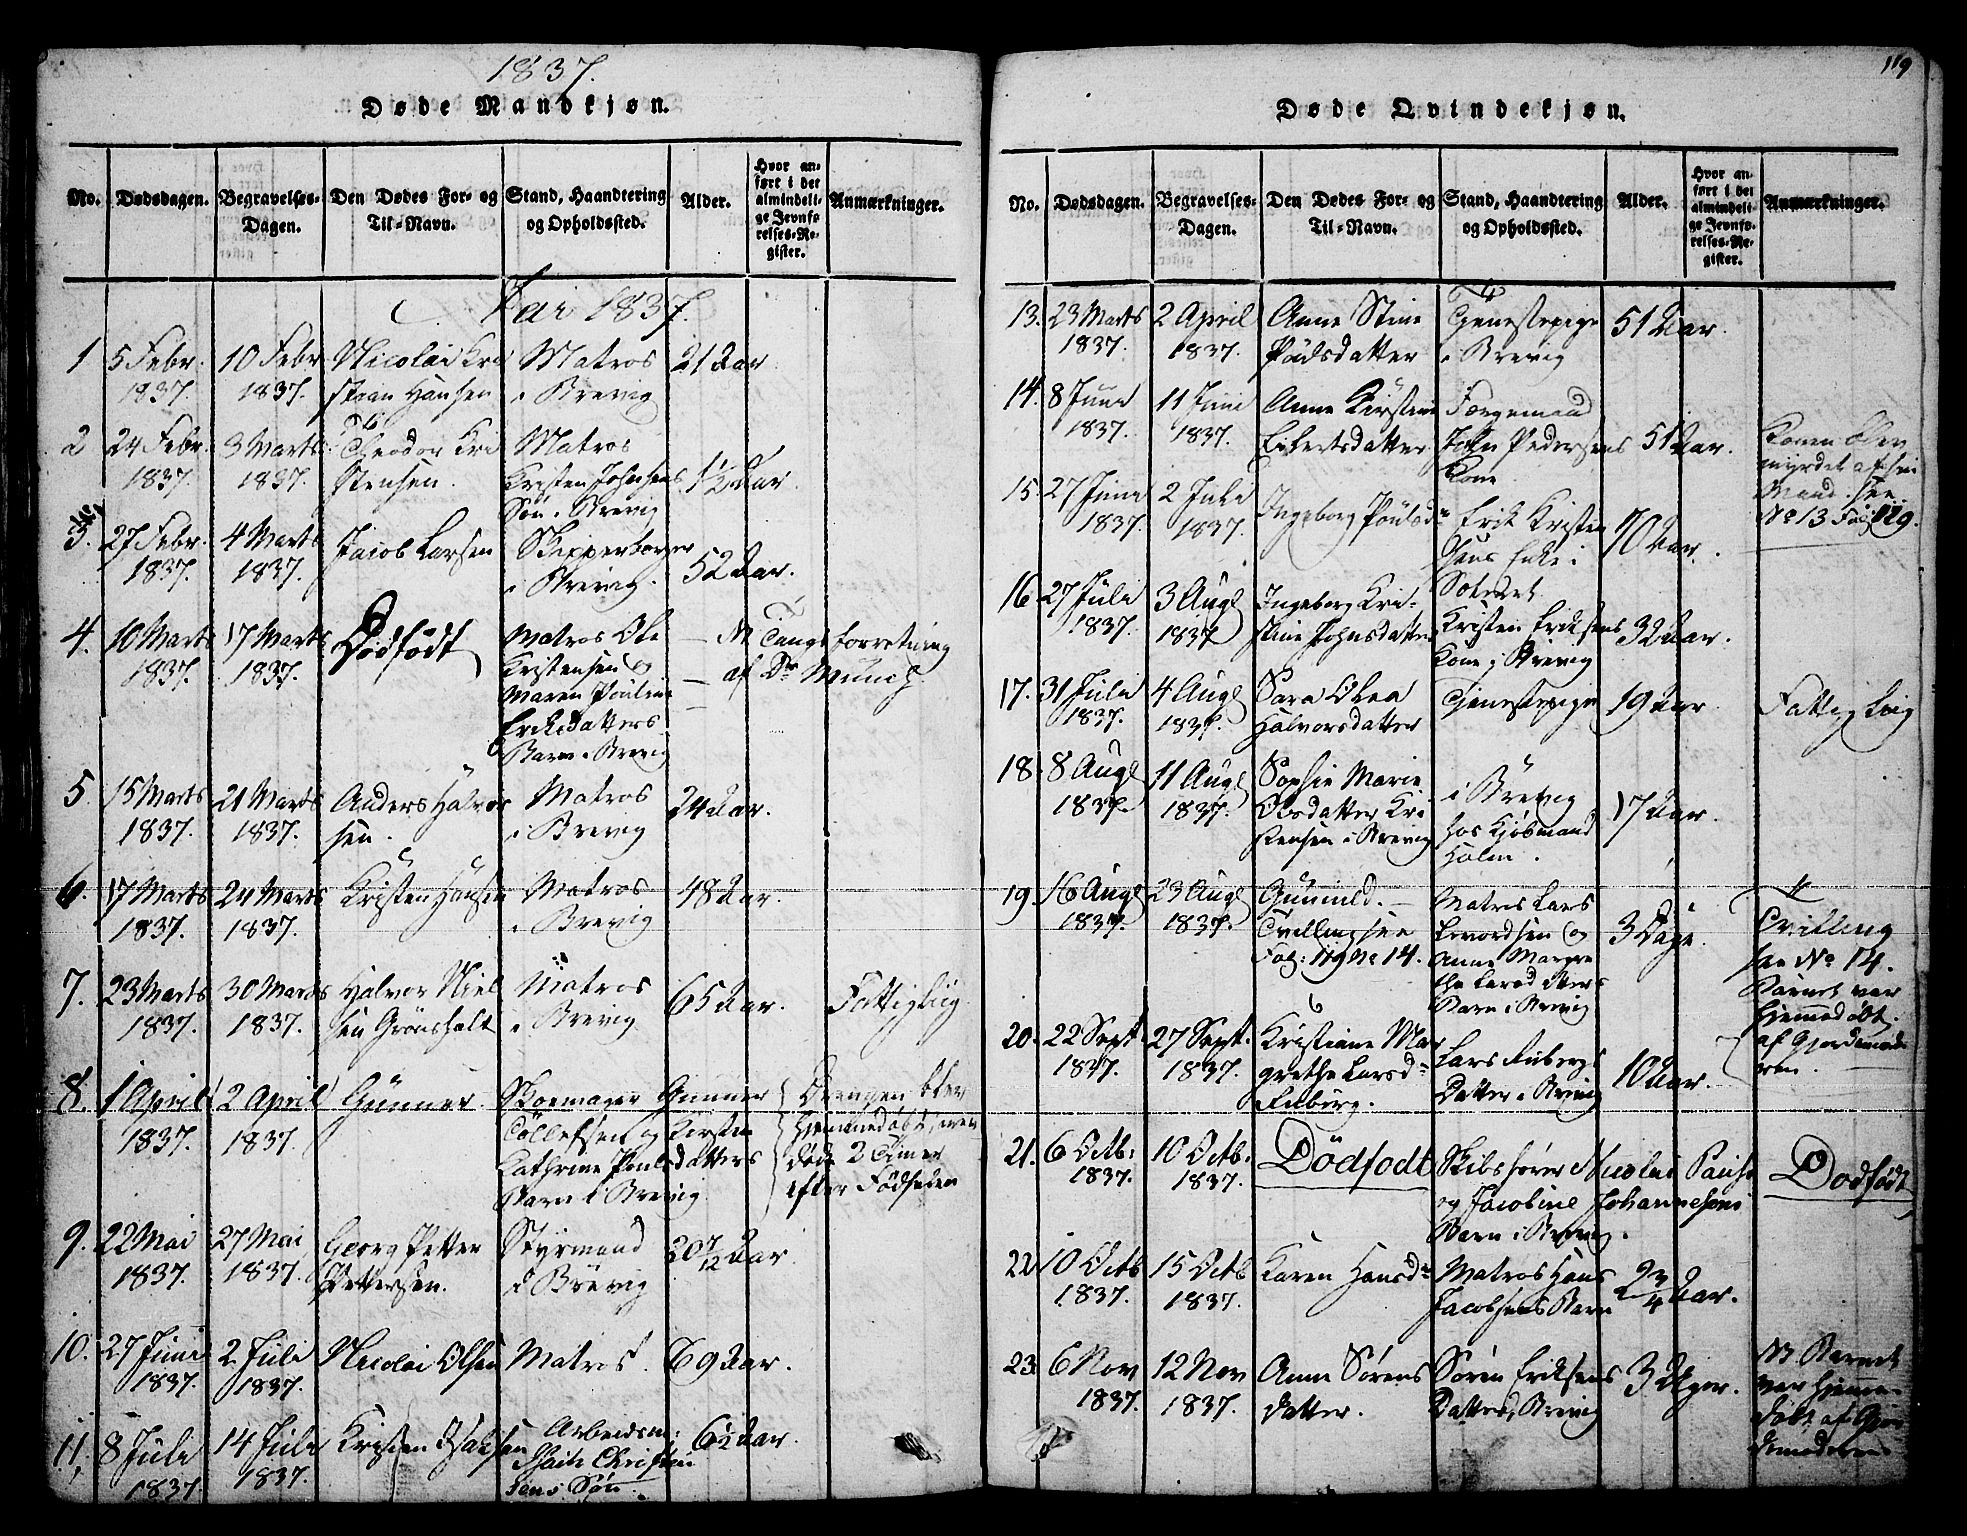 1837.
Døde Mandkjøn.
No.
Dødsdagen.
Begravelses-
Dagen.
Den Dødes For- og
Til-Navn.
Stand, Haandtering
og Opholdssted.
Alder.
Hvor an-
ført i det
almindeli-
ge Jevnfø
relses-Re-
gister.
Anmærkninger.
1837.
1
5 Febr.
1837.
10 Febr
1837.
Nicolai Kri
stian Hansen
Matros
i Brevig
21 Aar
2
24 Febr.
1837.
3 Marts
1837.
Theodor Kri
stensen.
Matros
Kristen Johnsens
Søn i Brevig
1½ Aar
3.
27 Febr.
1837.
4 Marts
1837.
Jacob Larsen
Skipperborger
i Brevig.
52 Aar.
4.
10 Marts
1837.
17 Marts
1837.
Dødfødt
Matros Ole
Kristensen og
Maren Pouline
Eriksdatters
Barn i Brevig
Tangsforretning
af Dr Munch
5.
15 Marts
1837.
21 Marts
1837.
Anders Halvor
sen.
Matros
i Brevig
24 Aar.
6.
17 Marts
1837.
24 Marts
1837.
Kristen Hansen
Matros
i Brevig
48 Aar.
7.
23 Marts
1837.
30 Marts
1837.
Halvor Niel
sen Grønsholt
Matros
i Brevig
65 Aar.
Fattiglig.
8.
1 April
1837.
2 April
1837.
Gunner
Skoemager Gunner
Tollefsen og Kirstin
Kathrine Poulsdatters
Barn i Brevig
Drengen blev
hjemmedøbt, men
døde 2 Timer
efter Fødselen
9.
22 Mai
1837.
27 Mai
1837.
Georg Petter
Pettersen.
Styrmand
i Brevig
20 7/12 Aar
10.
27 Juni
1837.
2 Juli
1837.
Nicolai Olsen
Matros.
69 Aar.
11,
8 Juli
1837.
14 Juli
1837.
Kristen Isaksen
Arbeidsm:
Isaik Christen
sens Søn.
6½ Aar.
119
Døde Qvindekjøn.
No.
Dødsdagen.
Begravelses-
Dagen.
Den Dødes For- og
Til-Navn.
Stand, Haandtering
og Opholdssted.
Alder.
Hvor an-
ført i det
almindeli-
ge Jevnfø-
relses-Re-
gister.
Anmærkninger.
13.
23 Marts
1837.
2 April
1837.
Anne Stine
Poulsdatter
Tjenestepige
i Brevig
51 Aar.
14.
8 Juni
1837.
11 Juni
1837.
Anne Kirstine
Eilertsdatter
Færgemand
John Pedersens
Kone
51 Aar.
Konen blev
myrdet af sin
Mand. see
No 13 Fol: 119.
15.
27 Juni
1837.
2 Juli
1837.
Ingeborg Poulsdr
Erik Kristen
sens Enke i
70 Aar.
16.
27 Juli
1837.
3 Augl
1837
Ingeborg Kri-
stine Johnsdatter
Kristen Eriksens
Kone i Brevig
32 Aar.
17.
31 Juli
1837.
4 Augl
1837.
Sara Olea
Halvorsdatter
Tjenestepige
19 Aar
Fattig Liig
18.
8 Augl
1837.
11 Augl
1837.
Sophie Marie
Olsdatter Kri
stensen i Brevig
i Brevig
hos Kjøbmand
Holm.
17 Aar.
19.
16 Augl
1837.
23 Augl
1837.
Gunnild.
Tvilling see
Fol: 119 No 14.
Matros Lars
Levordsen og
Anne Margre
the Larsdatters
Barn i Brevig
3 Dage.
Tvilling
see No 14.
Barnet var
hjemmedøbt
af Gjordemode
ren.
20.
22 Sept.
1837.
27 Sept.
1837.
Kristiane Mar
grethe Larsdr
Friberg.
Lars Fribergs
Datter i Brevig
10 Aar.
21.
6 Octb:
1837.
10 Octb.
1837.
Dødfødt
Skibsfører Nicolai
og Jacobine Johannesens
Barn i Brevig.
Dødfødt
22
10 Octb
1837.
15 Octb
1837.
Karen Hansdr
Matros Hans
Jacobsens Barn
2 3/4 Aar.
23
6 Nov
1837.
12 Nov
1837.
Anne Sørens
datter.
Søren Eriksens
Datter, Brevig
3 Uger.
NB Barnet
var hjemme-
døbt af Gjor
demoderen